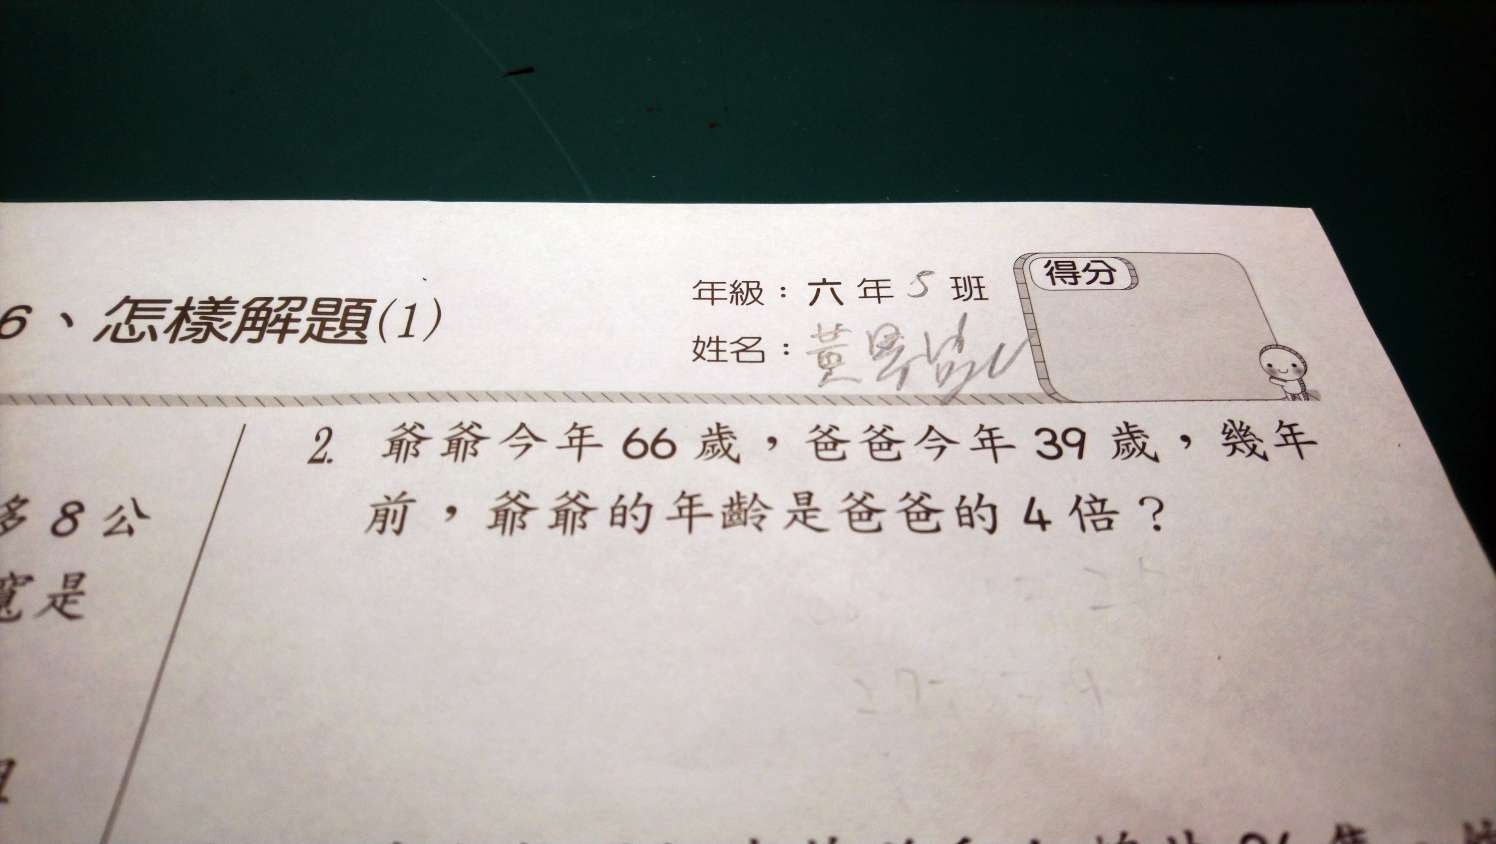 6、怎樣解題(1)
年級：六年5班
姓名：黃
得分
多8公
寬是
2. 爺爺今年66歲，爸爸今年39歲，幾年
前，爺爺的年齡是爸爸的4倍？